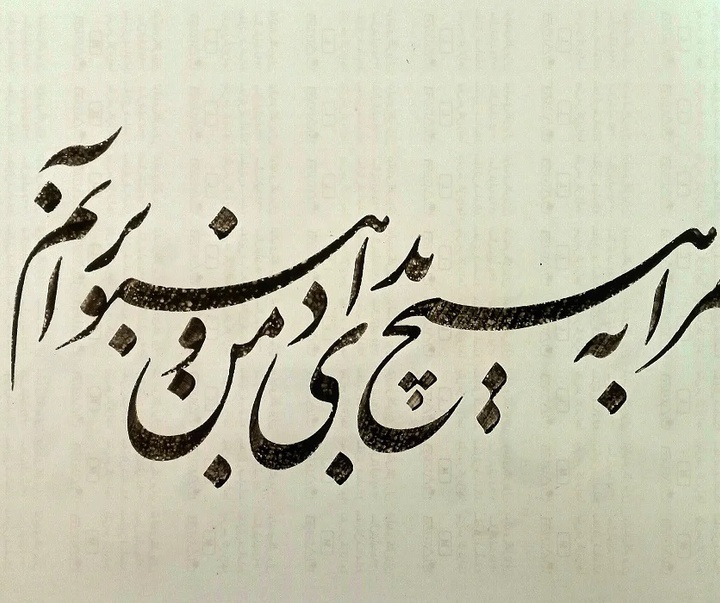 مرا به هیچ بدادی و من هنوز برآنم